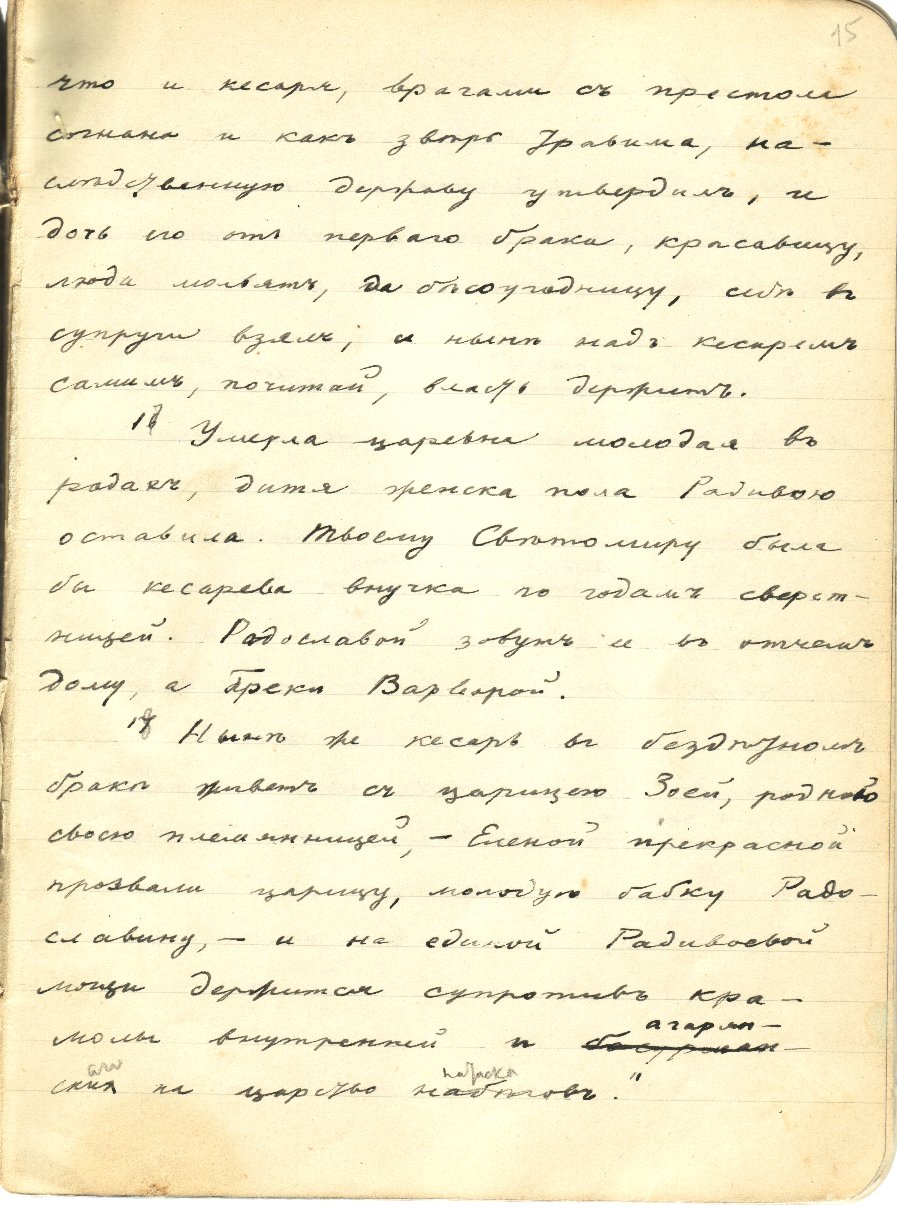 15
что и кесаря, врагами съ престола
согнана и какъ звѣрь травима, на-
слѣдственную державу утвердилъ, и
дочь его отъ перваго брака, красавицу,
люди мольятъ, да бѣсоугодницу, себѣ въ
супруги взялъ, и нынѣ надъ кесаремъ
самимъ, почитай, власть держитъ.
Умерла царевна молодая въ
родахъ, дитя женска пола Радивою
оставила. Твоему Свѣтомиру была
бы кесарева внучка по годамъ сверст-
ницей. Радославой зовутъ ее въ отчемъ
дому, а Греки Варварой.
Нынѣ же кесарь въ бездѣтномъ
бракѣ живетъ съ царицею Зоей, родною
своею племянницей, – Еленой прекрасной
прозвали царицу, молодую бабку Радо-
славину, – и на единой Радивоевой
мощи держится супротивъ кра-
агарян-
молы внутренней и басурман-
аго натиска
скихъ на царство набѣговъ."